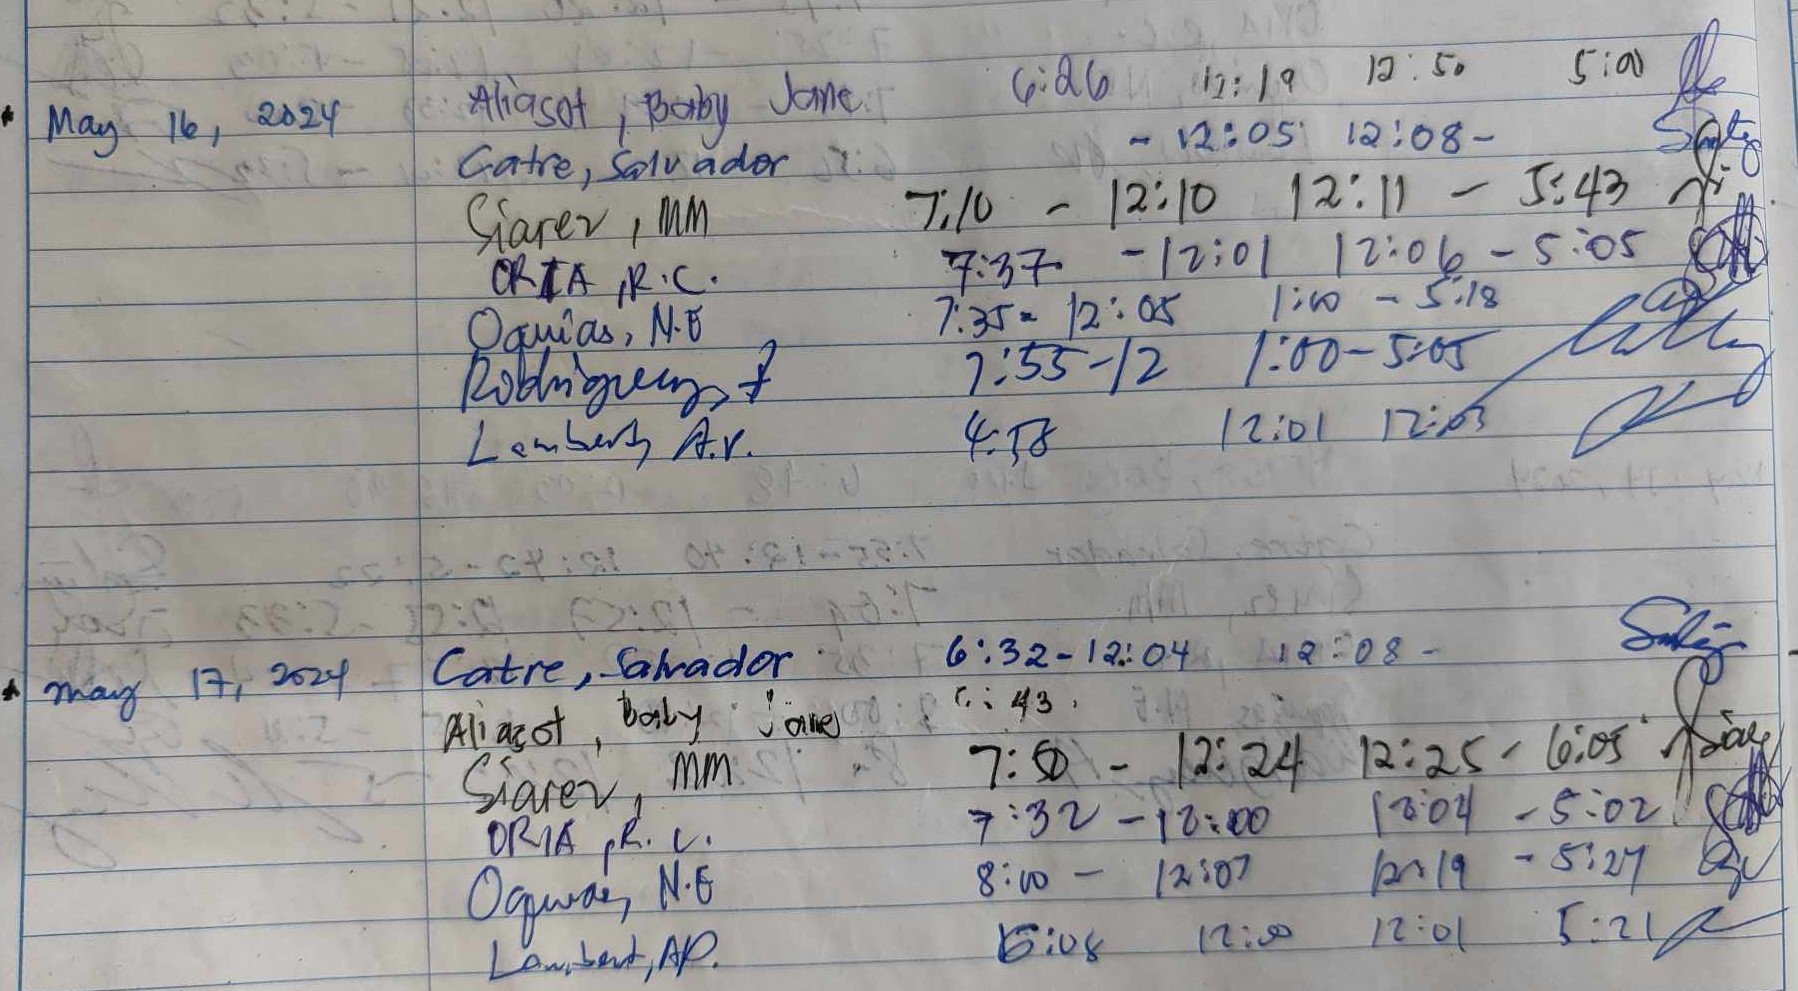 May 16, 2024 Aliasot, Baby Jane 6:26 12:19 12:50 5:00
Catre, Salvador - 12:05 12:08 -
Siarez, MM 7:10 - 12:10 12:11 - 5:43
ORIA, R.C. 7:37 - 12:01 12:06 - 5:05
Oquias, N.E 7:35 - 12:05 1:00 - 5:18
Rodriguez, J 7:55 - 12 1:00 - 5:05
Lambert, A.P. 4:58 12:01 12:03
* May 17, 2024 Catre, Salvador 6:32 - 12:04 12:08 -
Aliasot, Baby Jane :43
Siarez, MM 7:50 - 12:24 12:25 - 6:05
ORIA, R.C. 7:32 - 12:00 12:04 - 5:02
N.E 8:00 - 12:07 12:19 - 5:27
Lambert, AP. 6:08 12:00 12:01 5:21